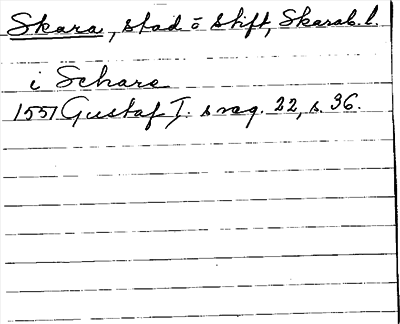 Skara, stad o stift, Skarab. l.
i Schara
1551 Gustaf I: s reg. 22, s. 36.